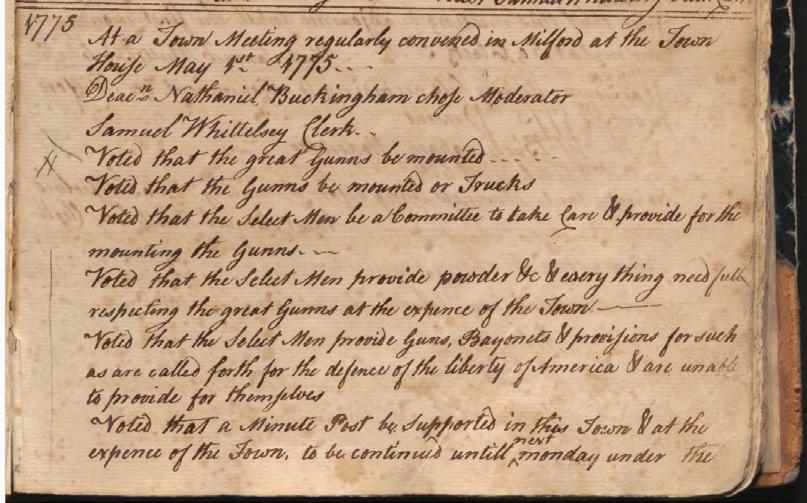 1775
At a Town Meeting regularly convened in Milford at the Town
House May 1st 1775
Deacn Nathaniel Buckingham chose Moderator
Samuel Whittelsey Clerk
Voted that the great Gunns be mounted
Voted that the Gunns be mounted or Trucks
Voted that the Select Men be a Committee to take Care & provide for the
mounting the Gunns
Voted that the Select Men provide powder &c & every thing needfull
respecting the great Gunns at the expence of the Town
Voted that the Select Men provide Guns, Bayonets & provisions for such
as are called forth for the defence of the liberty of America & are unable
to provide for themselves
Voted that a Minute Post be supported in this Town & at the
expence of the Town, to be continued untill next monday under the